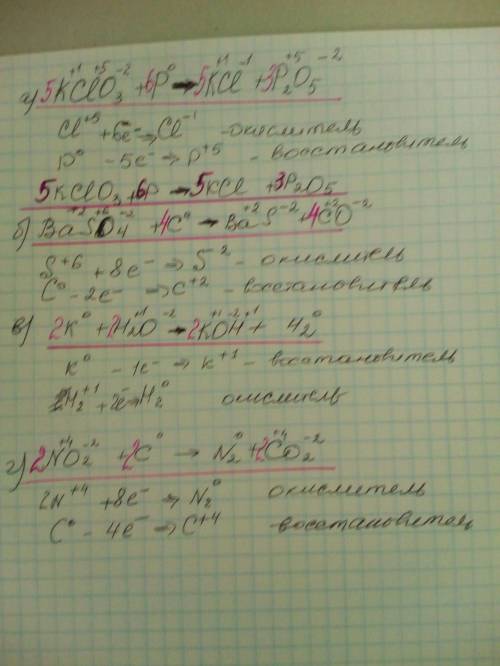 а) 5K⁺¹Cl⁺⁵O₃⁻² + 6P⁰ → 5K⁺¹Cl⁻¹ + 3P₂⁺⁵O₅⁻²
Cl⁺⁵ + 6e⁻ → Cl⁻¹ - окислитель
P⁰ - 5e⁻ → P⁺⁵ - восстановитель
5KClO₃ + 6P → 5KCl + 3P₂O₅
б) Ba⁺²S⁺⁶O₄⁻² + 4C⁰ → Ba⁺²S⁻² + 4C⁺²O⁻²
S⁺⁶ + 8e⁻ → S⁻² - окислитель
C⁰ - 2e⁻ → C⁺² - восстановитель
в) 2K⁰ + 2H₂⁺¹O⁻² → 2K⁺¹O⁻²H⁺¹ + H₂⁰
K⁰ - 1e⁻ → K⁺¹ - восстановитель
2H₂⁺¹ + 2e⁻ → H₂⁰ окислитель
г) 2N⁺⁴O₂⁻² + 2C⁰ → N₂⁰ + 2C⁺⁴O₂⁻²
2N⁺⁴ + 8e⁻ → N₂⁰ окислитель
C⁰ - 4e⁻ → C⁺⁴ - восстановитель